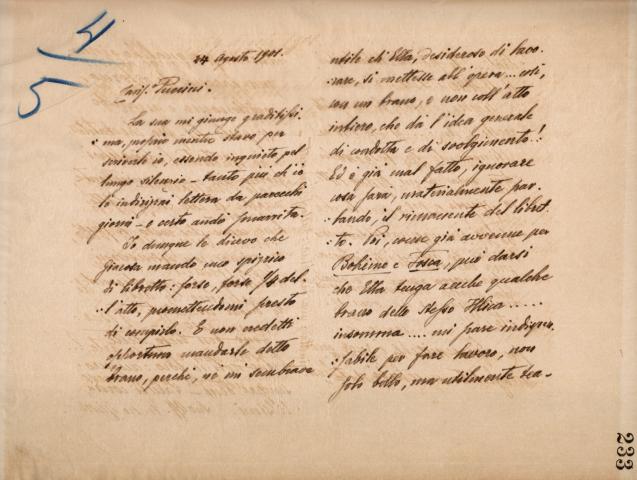 4/5
24 Agosto 1901.
Cariss.º Puccini.
La sua mi giunge graditissi-
:ma, proprio mentre stavo per
scriverle io, essendo inquieto pel
lungo silenzio – tanto più ch'io
le indirizzai lettera da parecchi
giorni – e certo andò smarrita.
In dunque le dicevo che
Giacosa mandò uno
di libretto: forse, forse 3/4 del-
:l'atto, promettendomi presto
di compierlo. E non credetti
opportuno mandarle detto
brano, perchè, nè mi sembrava
utile ch'Ella, desideroso di lavo-
rare, si mettesse all'opera... così,
con un brano, e non coll'atto
intiero, che dà l'idea generale
di condotta e di svolgimento!
Ed è già mal fatto, ignorare
cosa farà, materialmente par-
:lando, il rimanente del libret-
:to. Poi, come già avvenne per
Bohème e Tosca, può darsi
che Ella tenga anche qualche
brano dello stesso Illica.....
insomma.... mi pare indispen-
:sabile per fare lavoro, non
solo bello, ma utilmente tea-
233